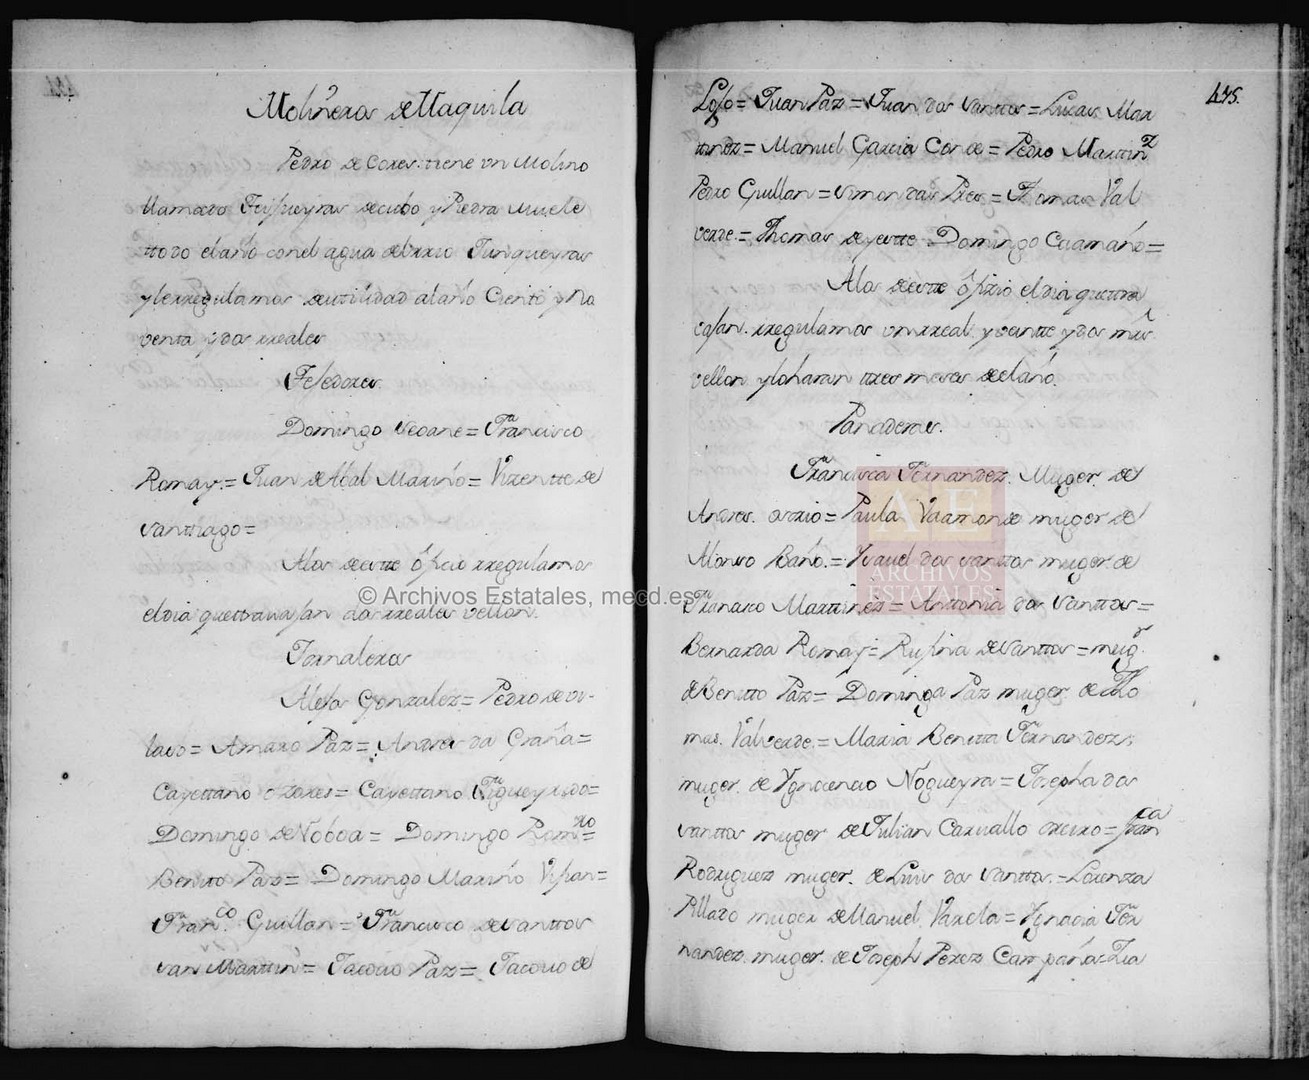 Molineros de Maquila
Pedro de Cores tiene vn Molino
llamado Fusqueyras de cubo y Piedra muele
ttodo el año con el agua del rrio Junqueyras
y le rregulamos de utilidad al año Ciento y No
venta y dos rreales
Tesedores.
Domingo Seoane = Francisco
Romay = Juan de Abal Mariño = Vizentte de
Santthiago =
A los de estte ôficio rregulamos
el dia que ttravajan dos rreales vellon.
Jornaleros
Alejo Gonzalez = Pedro de Vi-
lado = Amaro Paz = Andres da Graña =
Cayettano Cores = Cayettano Figueyrido =
Domingo de Noboa = Domingo Rom.ro =
Benitto Paz = Domingo Mariño =
Fran.co Guillan = Francisco de Santtos
San Marttin = Jacovo Paz = Jacovo de
475.
Juan Paz = Juan dos Santtos = Lucas Mar
ttinez = Manuel Garcia Conde = Pedro Marttin.z
Pedro Guillan = Simon das Pres = Thomas Val
verde = Thomas de yertte Domingo Caamaño =
A los de estte ôfizio el dia que ttra
vajan rregulamos vn rreal y veintte y dos mrs
vellon y lo haran ttres meses del año.
Panaderas.
Francisca Fernandez Muger de
Andres Ozzio = Paula Vaamonde muger de
Alonso Baño = Ysavel dos Santtos muger de
Francisco Marttinez = Anttonia dos Santtos =
Bernarda Romay = Rufina de Santtos = mug.r
de Benitto Paz = Dominga Paz muger de Tho
mas Valverde = Maria Benitta Fernandez,
muger de Ygnocencio Nogueyra = Josepha dos
Santtos muger de Julian Carvallo = Fran.ca
Rodriguez muger de Luis dos Santtos = Lorenza
Pillado muger de Manuel Varela = Ygnacia Fer
nandez muger de Joseph Perez Campaña = Lia
© Archivos Estatales, mecd.es
AE
ARCHIVOS
ESTATALES